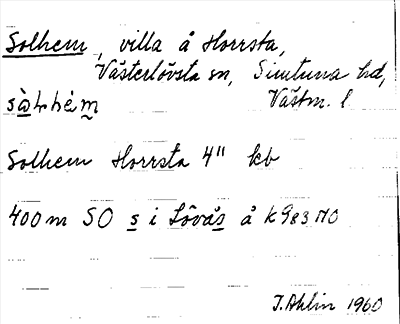 Solhem, villa å Horrsta,
Västerlövsta sn, Simtuna hd,
Västm. l
Solhem Horrsta 4" kb
400 m SO s i Lövås å k 983 NO
I. Ahlin 1960